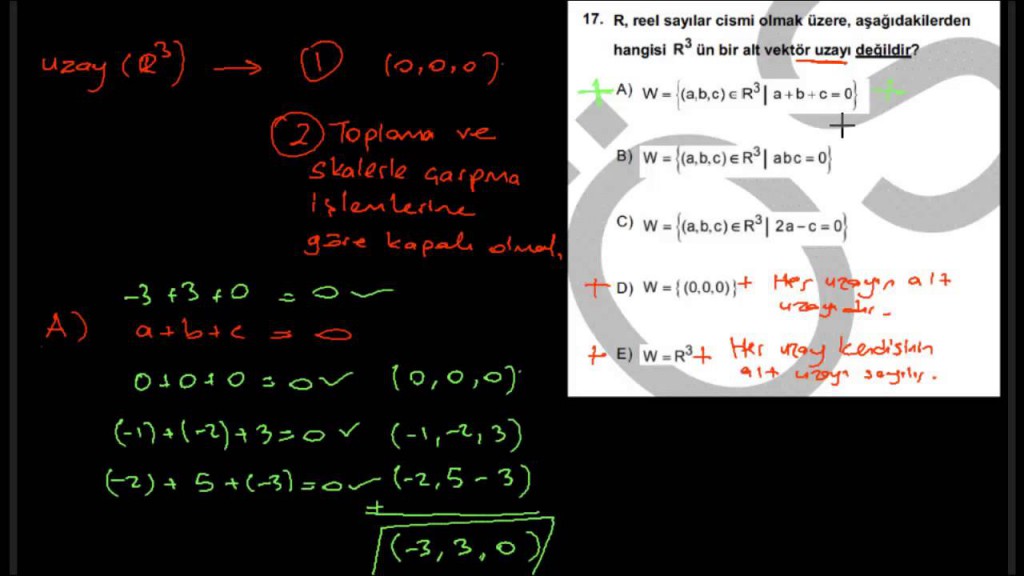 uzay (R³) → ① (0,0,0)
② Toplama ve
skalerle çarpma
işlemlerine
göre kapalı olmalı
-3 +3 +0 = 0 ✓
A) a+b+c = 0
0+0+0 = 0 ✓ (0,0,0)
(-1)+(-2)+3=0 ✓ (-1,-2,3)
(-2)+ 5 +(-3)=0 ✓ (-2,5-3)
+
(-3,3,0)
17. R, reel sayılar cismi olmak üzere, aşağıdakilerden
hangisi R³ ün bir alt vektör uzayı değildir?
+ A) W = {(a,b,c) ∈ R³ | a+b+c = 0} +
B) W = {(a,b,c) ∈ R³ | abc = 0}
C) W = {(a,b,c) ∈ R³ | 2a – c = 0}
+ D) W = {(0,0,0)} + Her uzayın alt
uzayıdır.
+ E) W = R³ + Her uzay kendisinin
alt uzayı sayılır.